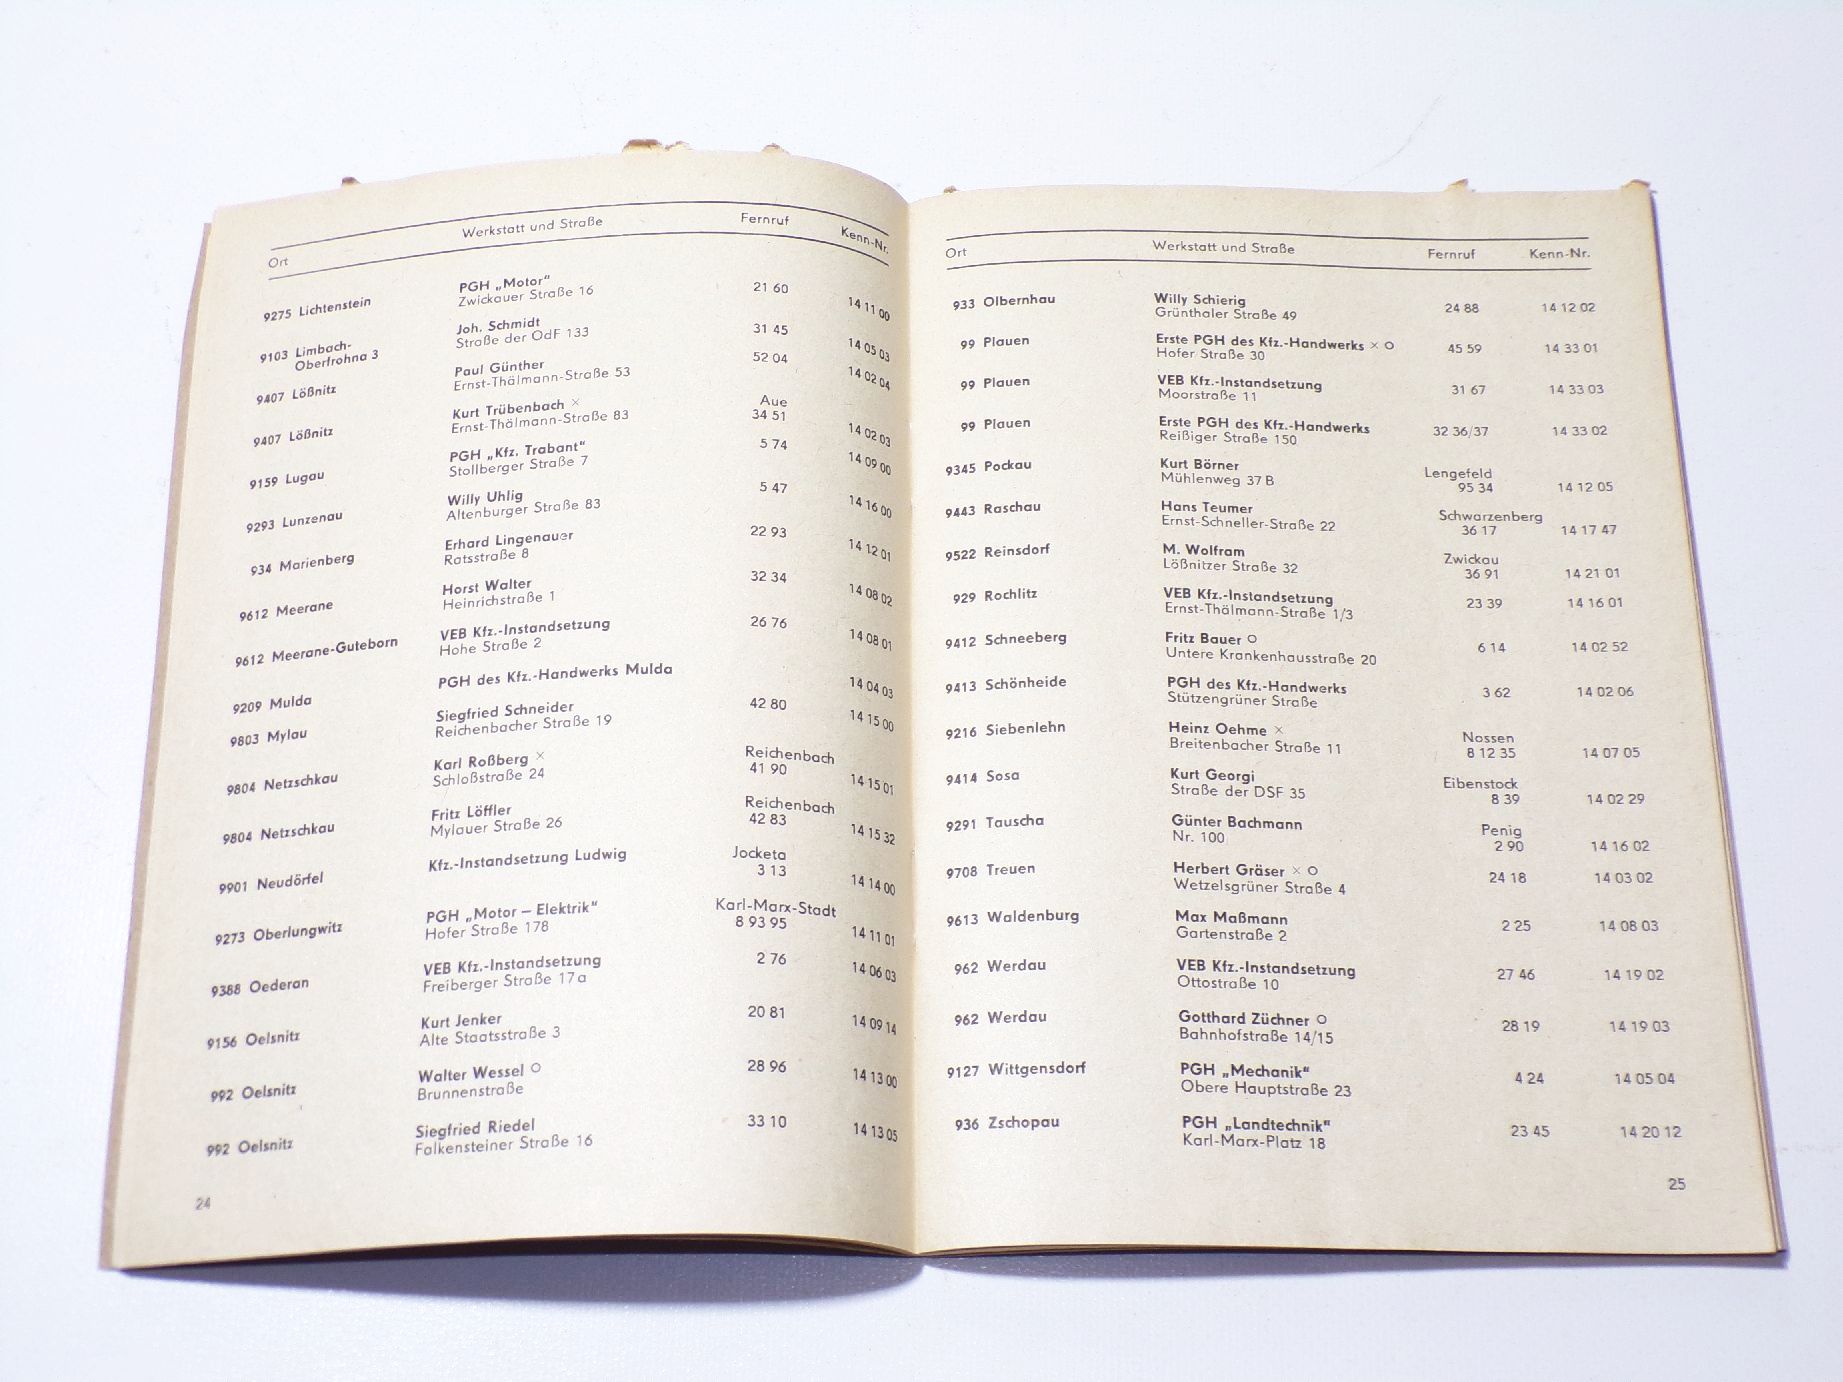 Ort Werkstatt und Straße Fernruf Kenn-Nr.
9275 Lichtenstein PGH „Motor“ 21 60 14 11 00
Zwickauer Straße 16
9103 Limbach- Joh. Schmidt 31 45 14 05 03
Oberfrohna 3 Straße der OdF 133
9407 Lößnitz Paul Günther 52 04 14 02 04
Ernst-Thälmann-Straße 53
9407 Lößnitz Kurt Trübenbach × Aue
Ernst-Thälmann-Straße 83 34 51 14 02 03
9159 Lugau PGH „Kfz. Trabant“ 5 74 14 09 00
Stollberger Straße 7
9293 Lunzenau Willy Uhlig 5 47 14 16 00
Altenburger Straße 83
934 Marienberg Erhard Lingenauer 22 93 14 12 01
Ratsstraße 8
9612 Meerane Horst Walter 32 34 14 08 02
Heinrichstraße 1
9612 Meerane-Guteborn VEB Kfz.-Instandsetzung 26 76 14 08 01
Hohe Straße 2
9209 Mulda PGH des Kfz.-Handwerks Mulda 14 04 03
9803 Mylau Siegfried Schneider 42 80 14 15 00
Reichenbacher Straße 19
9804 Netzschkau Karl Roßberg × Reichenbach
Schloßstraße 24 41 90 14 15 01
9804 Netzschkau Fritz Löffler Reichenbach
Mylauer Straße 26 42 83 14 15 32
9901 Neudörfel Kfz.-Instandsetzung Ludwig Jocketa
3 13 14 14 00
9273 Oberlungwitz PGH „Motor – Elektrik“ Karl-Marx-Stadt
Hofer Straße 178 8 93 95 14 11 01
9388 Oederan VEB Kfz.-Instandsetzung 2 76 14 06 03
Freiberger Straße 17a
9156 Oelsnitz Kurt Jenker 20 81 14 09 14
Alte Staatsstraße 3
992 Oelsnitz Walter Wessel O 28 96 14 13 00
Brunnenstraße
992 Oelsnitz Siegfried Riedel 33 10 14 13 05
Falkensteiner Straße 16
24
Ort Werkstatt und Straße Fernruf Kenn-Nr.
933 Olbernhau Willy Schierig 24 88 14 12 02
Grünthaler Straße 49
99 Plauen Erste PGH des Kfz.-Handwerks × O 45 59 14 33 01
Hofer Straße 30
99 Plauen VEB Kfz.-Instandsetzung 31 67 14 33 03
Moorstraße 11
99 Plauen Erste PGH des Kfz.-Handwerks 32 36/37 14 33 02
Reißiger Straße 150
9345 Pockau Kurt Börner Lengefeld
Mühlenweg 37 B 95 34 14 12 05
9443 Raschau Hans Teumer Schwarzenberg
Ernst-Schneller-Straße 22 36 17 14 17 47
9522 Reinsdorf M. Wolfram Zwickau
Lößnitzer Straße 32 36 91 14 21 01
929 Rochlitz VEB Kfz.-Instandsetzung 23 39 14 16 01
Ernst-Thälmann-Straße 1/3
9412 Schneeberg Fritz Bauer O 6 14 14 02 52
Untere Krankenhausstraße 20
9413 Schönheide PGH des Kfz.-Handwerks 3 62 14 02 06
Stützengrüner Straße
9216 Siebenlehn Heinz Oehme × Nossen
Breitenbacher Straße 11 8 12 35 14 07 05
9414 Sosa Kurt Georgi Eibenstock
Straße der DSF 35 8 39 14 02 29
9291 Tauscha Günter Bachmann Penig
Nr. 100 2 90 14 16 02
9708 Treuen Herbert Gräser × O 24 18 14 03 02
Wetzelsgrüner Straße 4
9613 Waldenburg Max Maßmann 2 25 14 08 03
Gartenstraße 2
962 Werdau VEB Kfz.-Instandsetzung 27 46 14 19 02
Ottostraße 10
962 Werdau Gotthard Züchner O 28 19 14 19 03
Bahnhofstraße 14/15
9127 Wittgensdorf PGH „Mechanik“ 4 24 14 05 04
Obere Hauptstraße 23
936 Zschopau PGH „Landtechnik“ 23 45 14 20 12
Karl-Marx-Platz 18
25